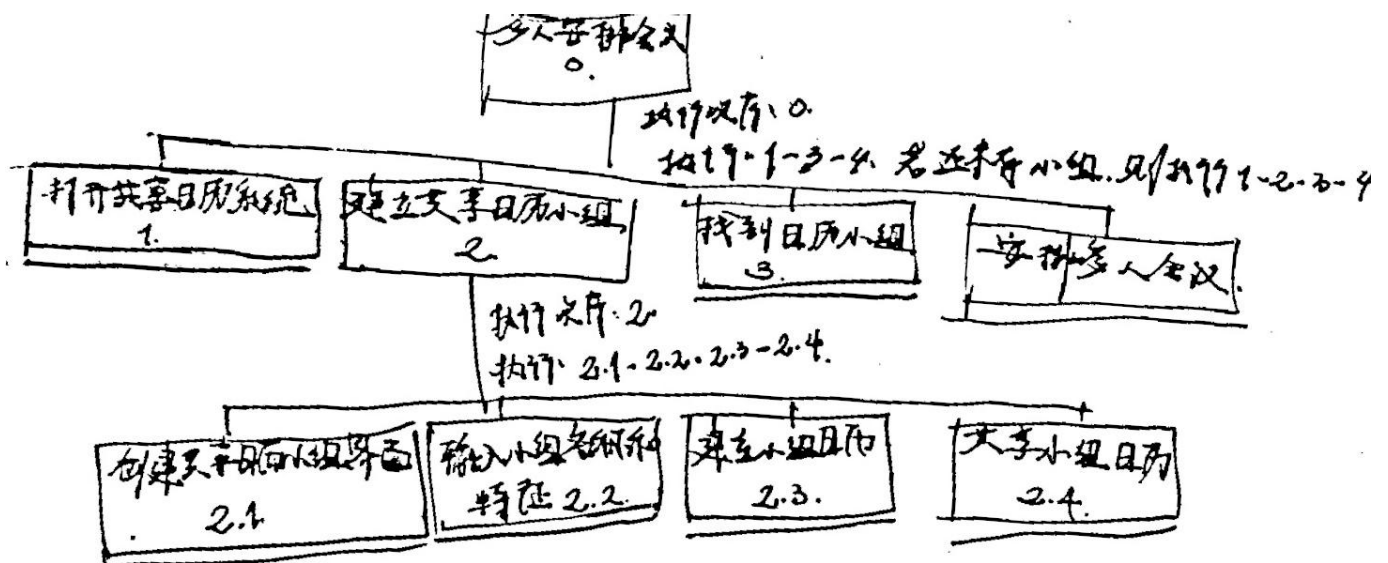 多人安排会议
0.
执行次序:0.
执行:1-3-4. 若还未有小组.则执行1-2-3-4
打开共享日历系统
1.
建立共享日历小组
2
找到日历小组
3.
安排多人会议.
执行次序:2.
执行:2.1-2.2-2.3-2.4.
创建共享日历小组界面
2.1.
输入小组名称和
特征 2.2.
建立小组日历
2.3.
共享小组日历
2.4.